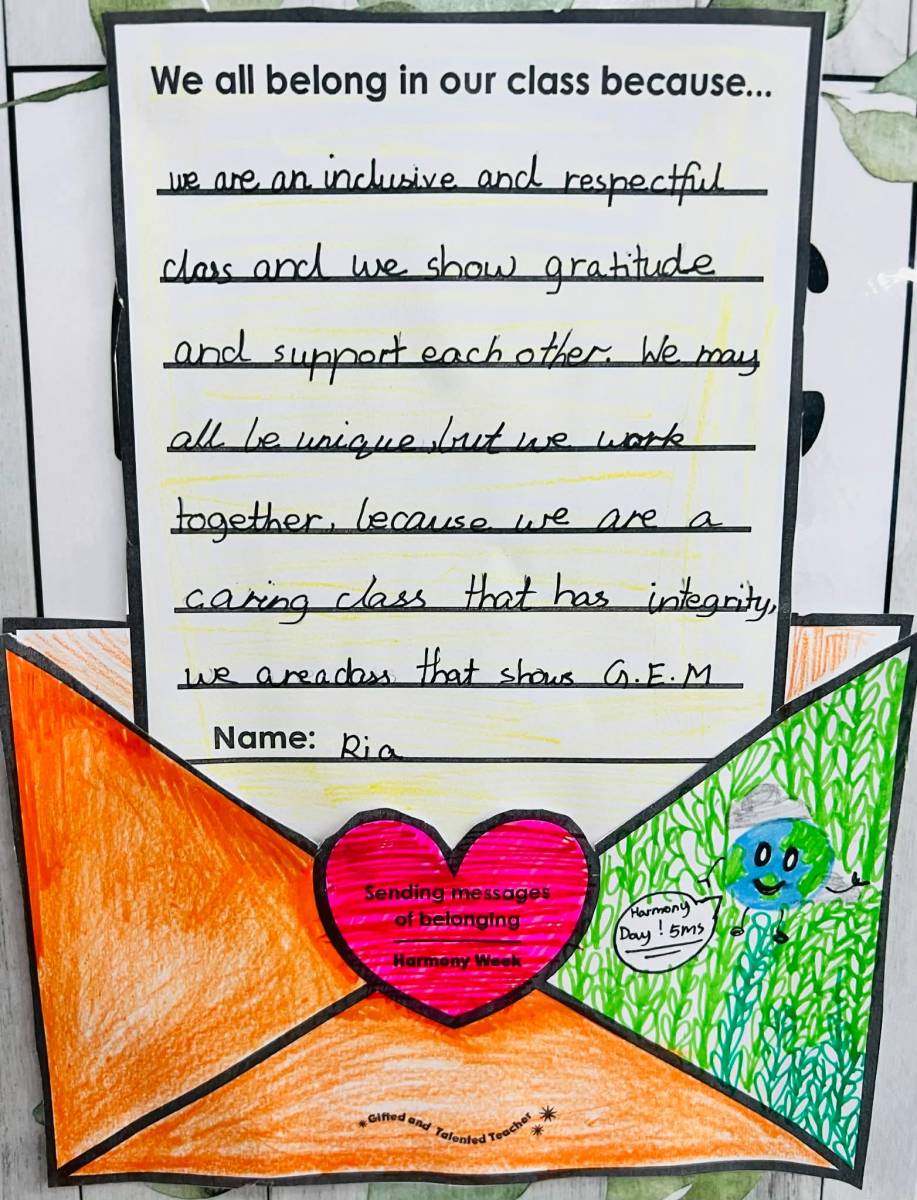 We all belong in our class because...
we are an inclusive and respectful
class and we show gratitude
and support each other. We may
all be unique, but we work
together, because we are a
caring class that has integrity,
we are a class that shows G.E.M
Name: Ria
Sending messages
of belonging
Harmony Week
Harmony
Day! 5ms
Gifted and Talented Teacher